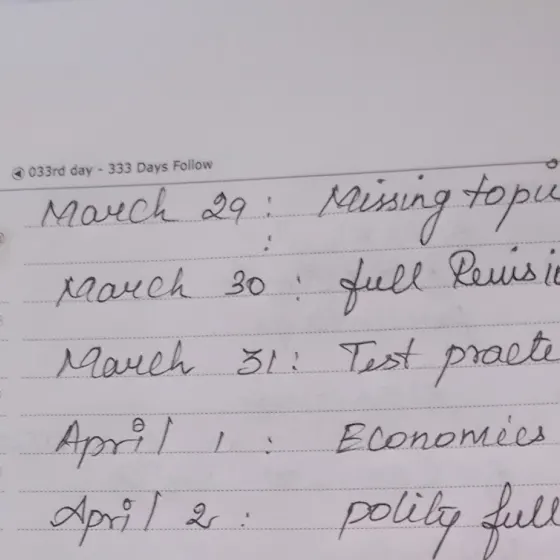 033rd day - 333 Days Follow
March 29 : Missing topi
:
March 30 : full Revisi
March 31 : Test practe
April 1 : Economics
April 2 : polity full